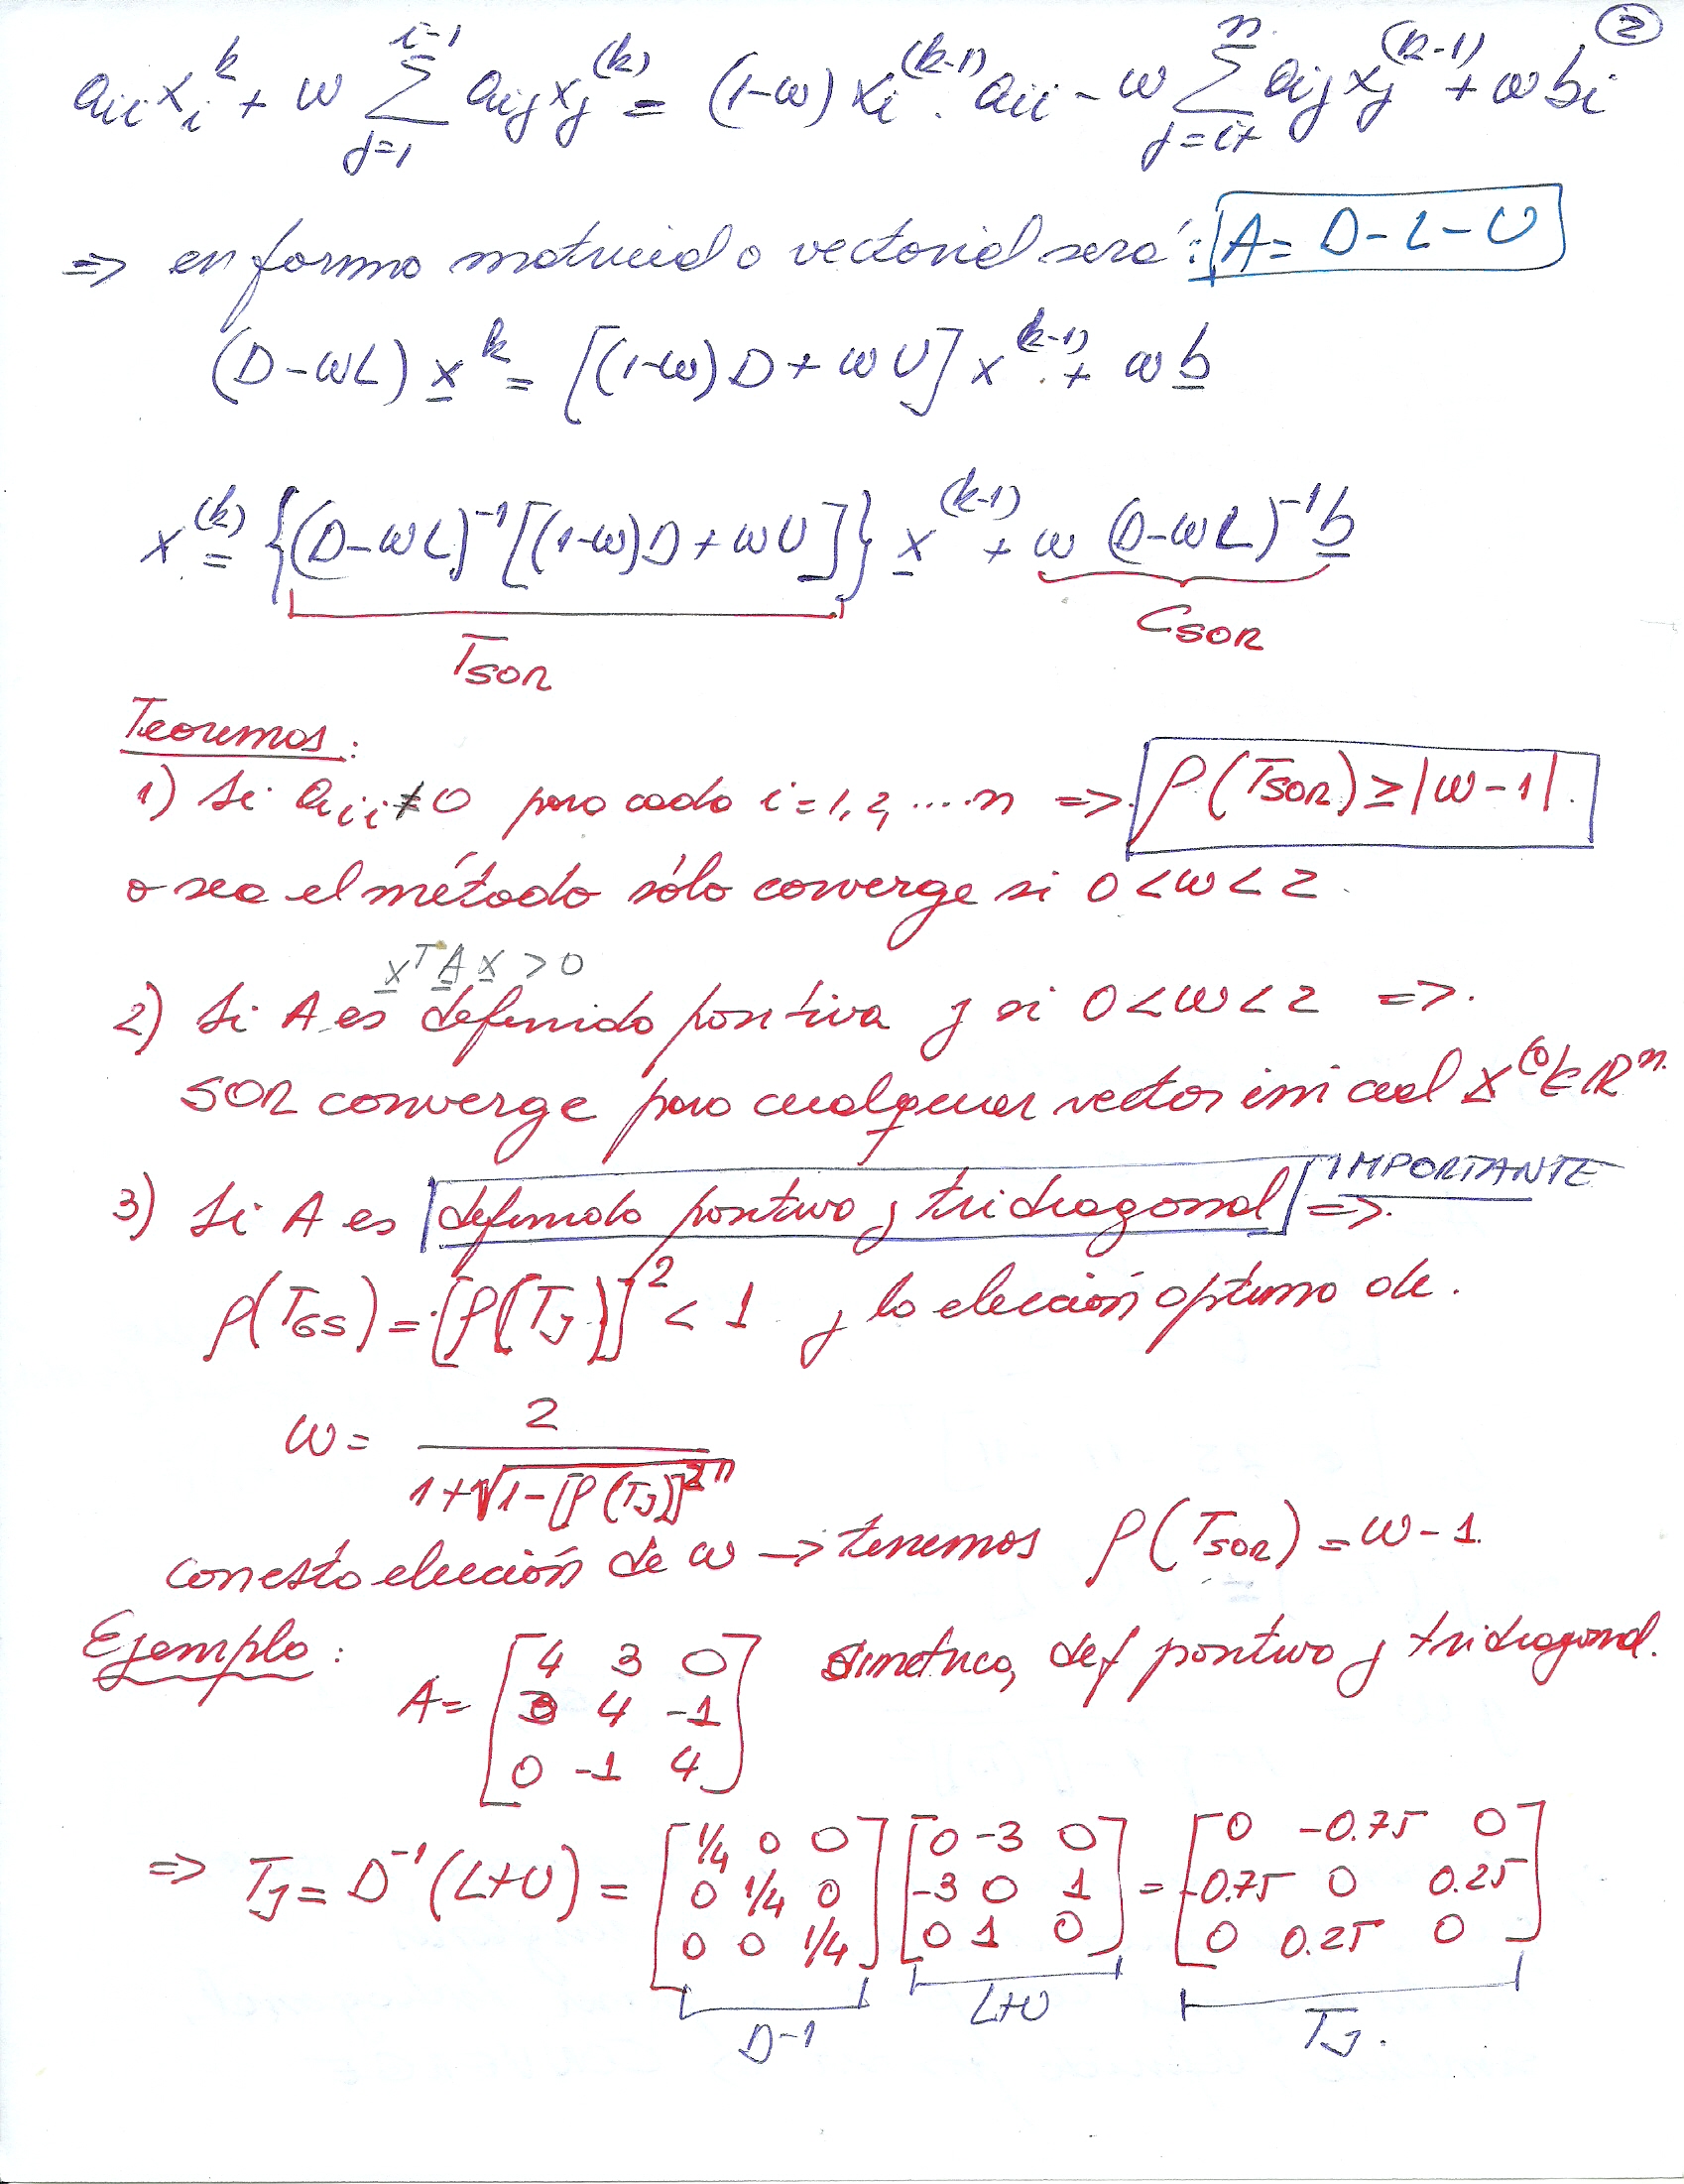 ②
aᵢᵢ xᵢᵏ + w ∑_{j=1}^{i-1} aᵢⱼ xⱼ^(k) = (1-w) xᵢ^(k-1) . aᵢᵢ - w ∑_{j=i+}^{n} aᵢⱼ xⱼ^(k-1) + w bᵢ
=> en forma matricial o vectorial será: A = D - L - U
(D - wL) x^k = [(1-w) D + w U] x^(k-1) + w b
x^(k) = {(D - wL)^-1 [(1-w) D + w U]} x^(k-1) + w (D - wL)^-1 b
T_SOR C_SOR
Teoremas:
1) Si aᵢᵢ ≠ 0 para cada i = 1, 2, .... n => ρ(T_SOR) ≥ |w - 1|.
o sea el método sólo converge si 0 < w < 2.
x^T A x > 0
2) Si A es definida positiva y si 0 < w < 2 =>.
SOR converge para cualquier vector inicial x^(0) ∈ R^n.
3) Si A es definida positiva y tridiagonal => IMPORTANTE
ρ(T_GS) = [ρ(T_J)]^2 < 1 y la elección optima de.
w = 2 / (1 + √(1 - [ρ(T_J)]^2))
con esta elección de w -> tenemos ρ(T_SOR) = w - 1.
Ejemplo:
A = [4 3 0; 3 4 -1; 0 -1 4] simetrica, def positiva y tridiagonal.
=> T_J = D^-1 (L+U) = [1/4 0 0; 0 1/4 0; 0 0 1/4] [0 -3 0; -3 0 1; 0 1 0] = [0 -0.75 0; -0.75 0 0.25; 0 0.25 0]
D-1 L+U T_J.